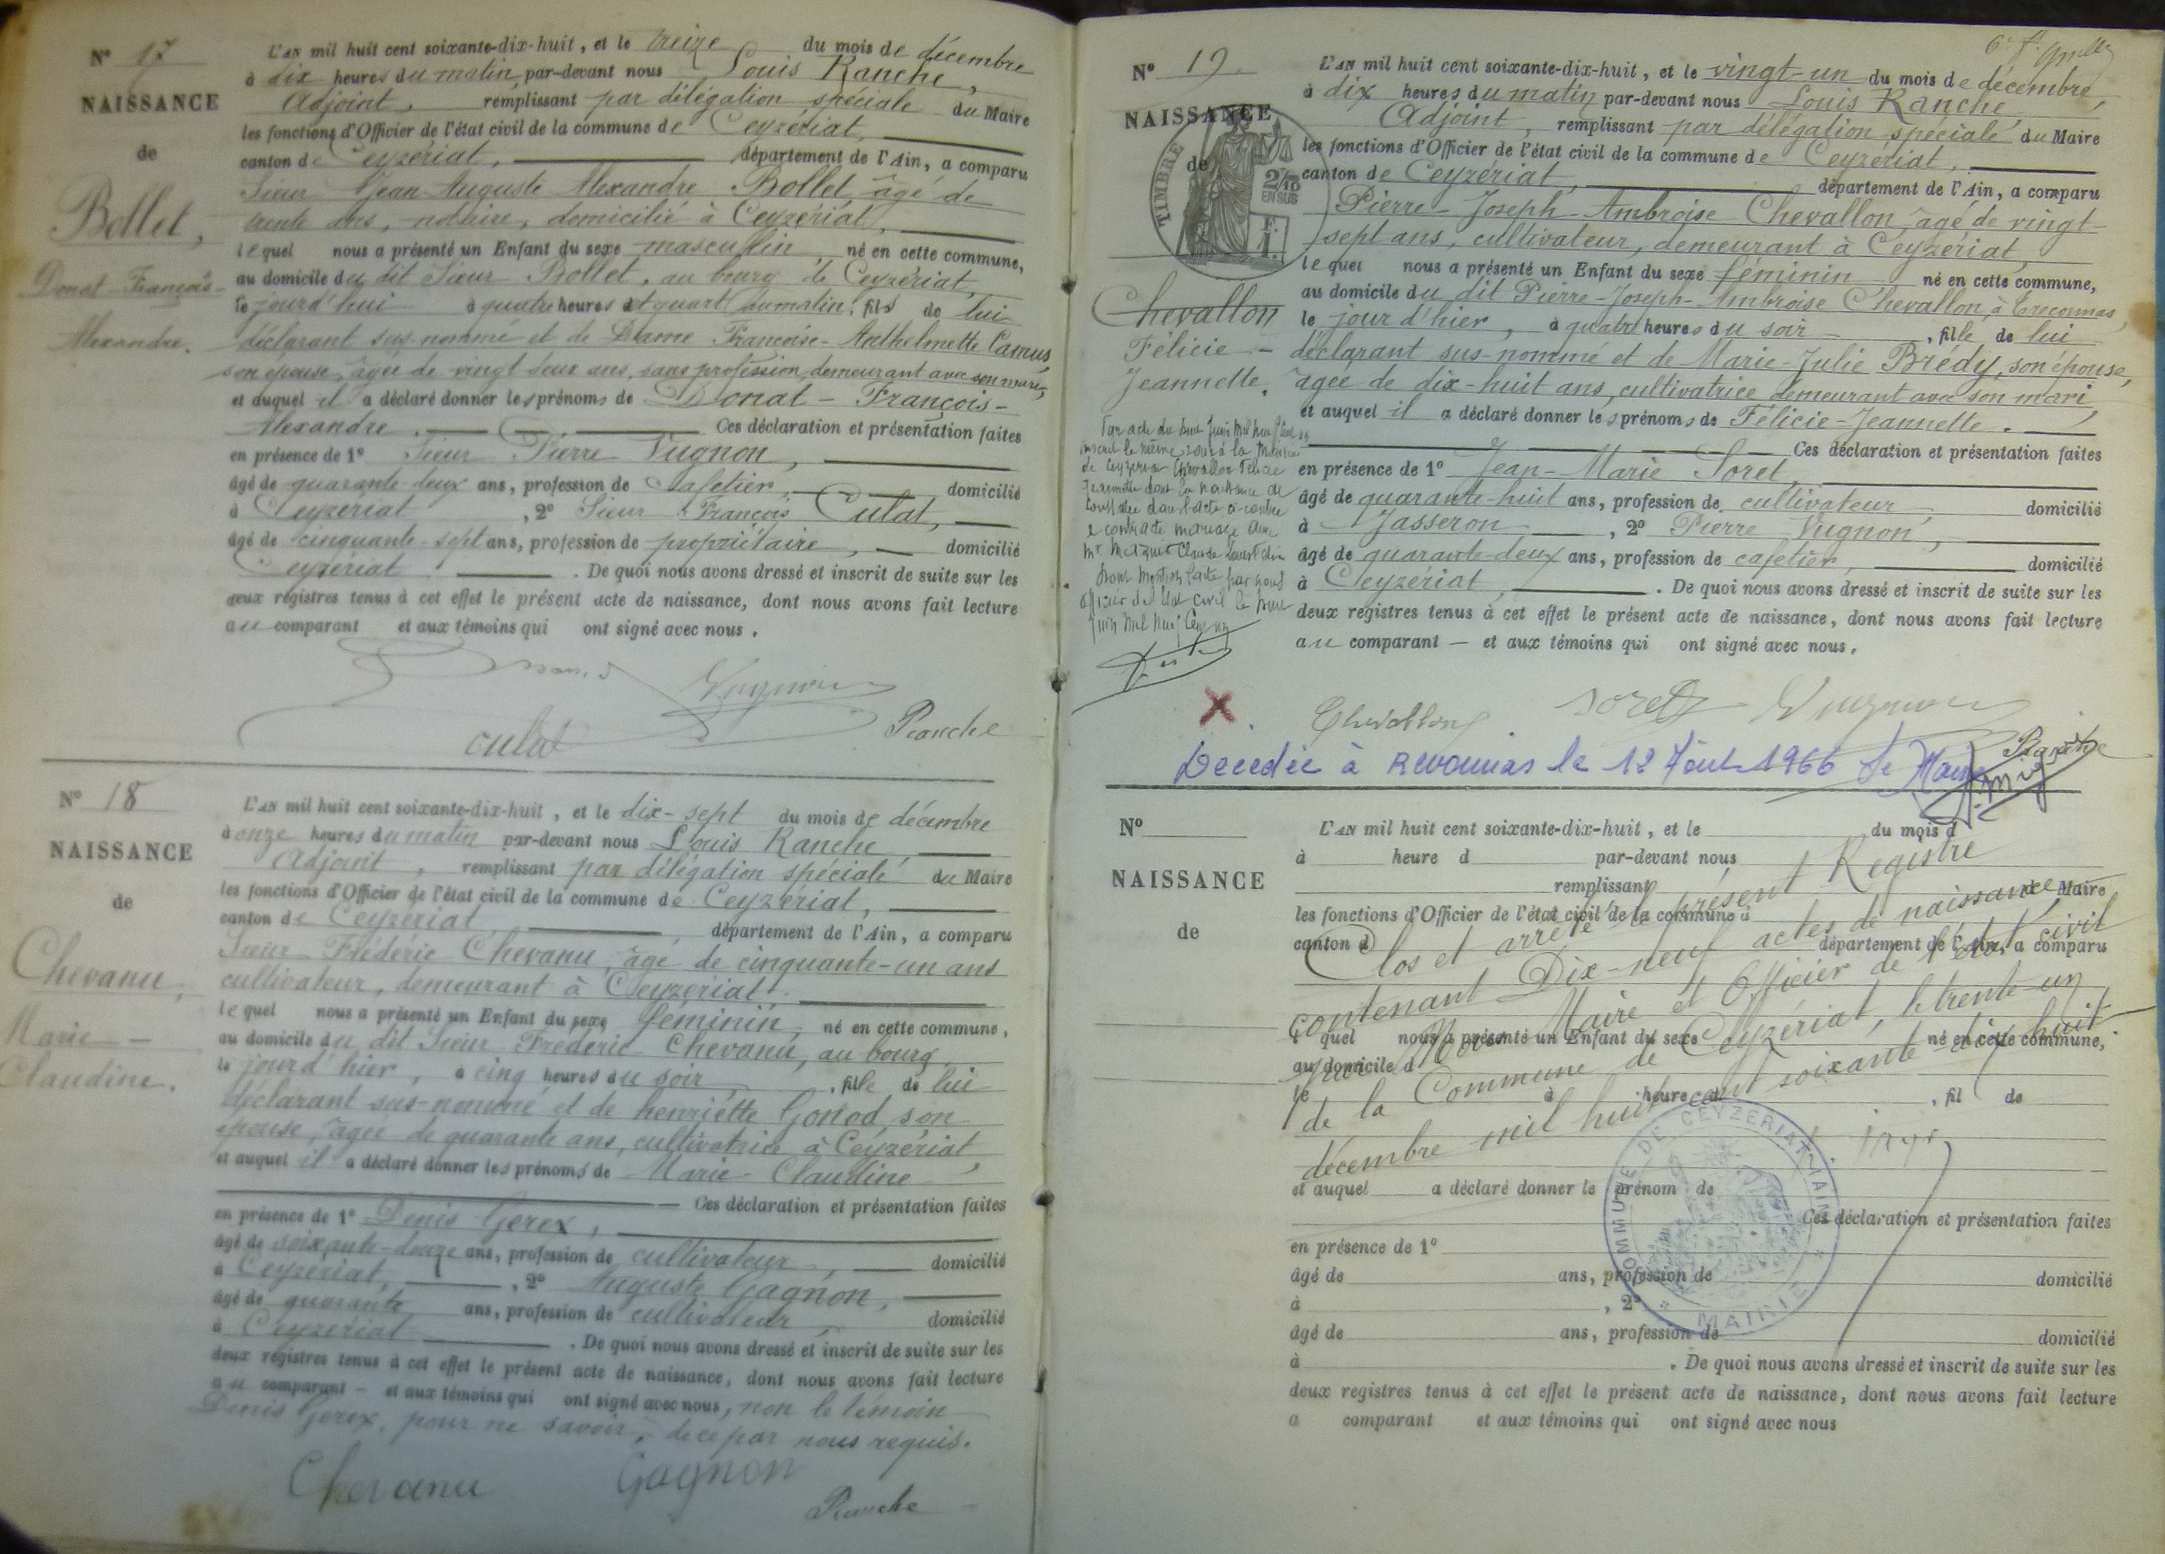 N° 17
NAISSANCE
de
Bollet,
Donat-François-
Alexandre.
L'AN mil huit cent soixante-dix-huit, et le treize du mois de décembre
à dix heures du matin, par-devant nous Louis Ranche,
Adjoint, remplissant par délégation spéciale du Maire
les fonctions d'Officier de l'état civil de la commune de Ceyzériat,
canton de Ceyzériat, département de l'Ain, a comparu
Sieur Jean Auguste Alexandre Bollet âgé de
trente ans, notaire, domicilié à Ceyzériat,
lequel nous a présenté un Enfant du sexe masculin, né en cette commune,
au domicile du dit Sieur Bollet, au bourg de Ceyzériat,
le jourd'hui à quatre heures et quart du matin, fils de lui
déclarant sus-nommé et de Dame Françoise-Anthelmette Camus,
son épouse, âgée de vingt deux ans, sans profession, demeurant avec son mari,
et auquel il a déclaré donner les prénoms de Donat-François-
Alexandre. Ces déclaration et présentation faites
en présence de 1° Sieur Pierre Vugnon,
âgé de quarante deux ans, profession de cafetier, domicilié
à Ceyzériat, 2° Sieur François Culat,
âgé de cinquante-sept ans, profession de propriétaire, domicilié
Ceyzériat. De quoi nous avons dressé et inscrit de suite sur les
deux registres tenus à cet effet le présent acte de naissance, dont nous avons fait lecture
au comparant et aux témoins qui ont signé avec nous.
Vugnon
culat Ranche
N° 18
NAISSANCE
de
Chevanu,
Marie-
Claudine.
L'AN mil huit cent soixante-dix-huit, et le dix-sept du mois de décembre
à onze heures du matin par-devant nous Louis Ranche
Adjoint, remplissant par délégation spéciale du Maire
les fonctions d'Officier de l'état civil de la commune de Ceyzériat,
canton de Ceyzériat, département de l'Ain, a comparu
Sieur Frédéric Chevanu, âgé de cinquante-un ans
cultivateur, demeurant à Ceyzériat,
lequel nous a présenté un Enfant du sexe féminin, né en cette commune,
au domicile du dit Sieur Frédéric Chevanu, au bourg,
le jourd'hier, à cinq heures du soir, fille de lui
déclarant sus-nommé et de henriette Gonod, son
épouse, âgée de quarante ans, cultivatrice à Ceyzériat,
et auquel il a déclaré donner les prénoms de Marie-Claudine
Ces déclaration et présentation faites
en présence de 1° Denis Gerex,
âgé de soixante-douze ans, profession de cultivateur, domicilié
à Ceyzériat, 2° Auguste Gagnon,
âgé de quarante ans, profession de cultivateur, domicilié
à Ceyzériat. De quoi nous avons dressé et inscrit de suite sur les
deux registres tenus à cet effet le présent acte de naissance, dont nous avons fait lecture
au comparant - et aux témoins qui ont signé avec nous, non le témoin
Denis Gerex, pour ne savoir, de ce par nous requis.
Chevanu Gagnon
Ranche
N° 19.
NAISSANCE
de
TIMBRE
2/10
EN SUS
F.
1.
Chevallon
Félicie-
Jeannette.
L'AN mil huit cent soixante-dix-huit, et le vingt-un du mois de décembre,
à dix heures du matin par-devant nous Louis Ranche
Adjoint, remplissant par délégation spéciale du Maire
les fonctions d'Officier de l'état civil de la commune de Ceyzériat,
canton de Ceyzériat, département de l'Ain, a comparu
Pierre-Joseph-Ambroise Chevallon, âgé de vingt-
sept ans, cultivateur, demeurant à Ceyzériat,
lequel nous a présenté un Enfant du sexe féminin né en cette commune,
au domicile du dit Pierre-Joseph-Ambroise Chevallon, à
le jour d'hier, à quatre heures du soir, fille de lui
déclarant sus-nommé et de Marie-Julie Brédy, son épouse,
âgée de dix-huit ans, cultivatrice demeurant avec son mari,
et auquel il a déclaré donner les prénoms de Félicie-Jeannette.
Ces déclaration et présentation faites
en présence de 1° Jean-Marie Soret,
âgé de quarante-huit ans, profession de cultivateur domicilié
à Jasseron, 2° Pierre Vugnon,
âgé de quarante-deux ans, profession de cafetier, domicilié
à Ceyzériat, . De quoi nous avons dressé et inscrit de suite sur les
deux registres tenus à cet effet le présent acte de naissance, dont nous avons fait lecture
au comparant - et aux témoins qui ont signé avec nous.
Par acte du Juin mil neuf cent
inscrit le même jour à la Mairie
de Ceyzériat Chevallon Félicie
Jeannette dont la naissance
constatée dans l'acte ci-contre
a contracté mariage avec
Mr Claude
dont mention faite par nous
officier de l'état civil le
Juin mil neuf cent
Chevallon Soret Vugnon
Ranche
Décédée à Revonnas le 12 Août 1966 Le Maire
N°
NAISSANCE
de
L'AN mil huit cent soixante-dix-huit, et le du mois d
à heure d par-devant nous
remplissant d Maire
les fonctions d'Officier de l'état civil de la commune d
canton d département de l'Ain, a comparu
l quel nous a présenté un Enfant du sexe né en cette commune,
au domicile d
le à heure d , fil de
et auquel a déclaré donner le prénom de
Ces déclaration et présentation faites
en présence de 1°
âgé de ans, profession de domicilié
à , 2°
âgé de ans, profession de domicilié
à . De quoi nous avons dressé et inscrit de suite sur les
deux registres tenus à cet effet le présent acte de naissance, dont nous avons fait lecture
a comparant et aux témoins qui ont signé avec nous
Clos et arrêté le présent Registre
contenant Dix-neuf actes de naissance,
par Nous Maire et Officier de l'état civil
de la Commune de Ceyzériat, le trente-un
décembre mil huit cent soixante-dix-huit.
COMMUNE DE CEYZERIAT (AIN)
MAIRIE